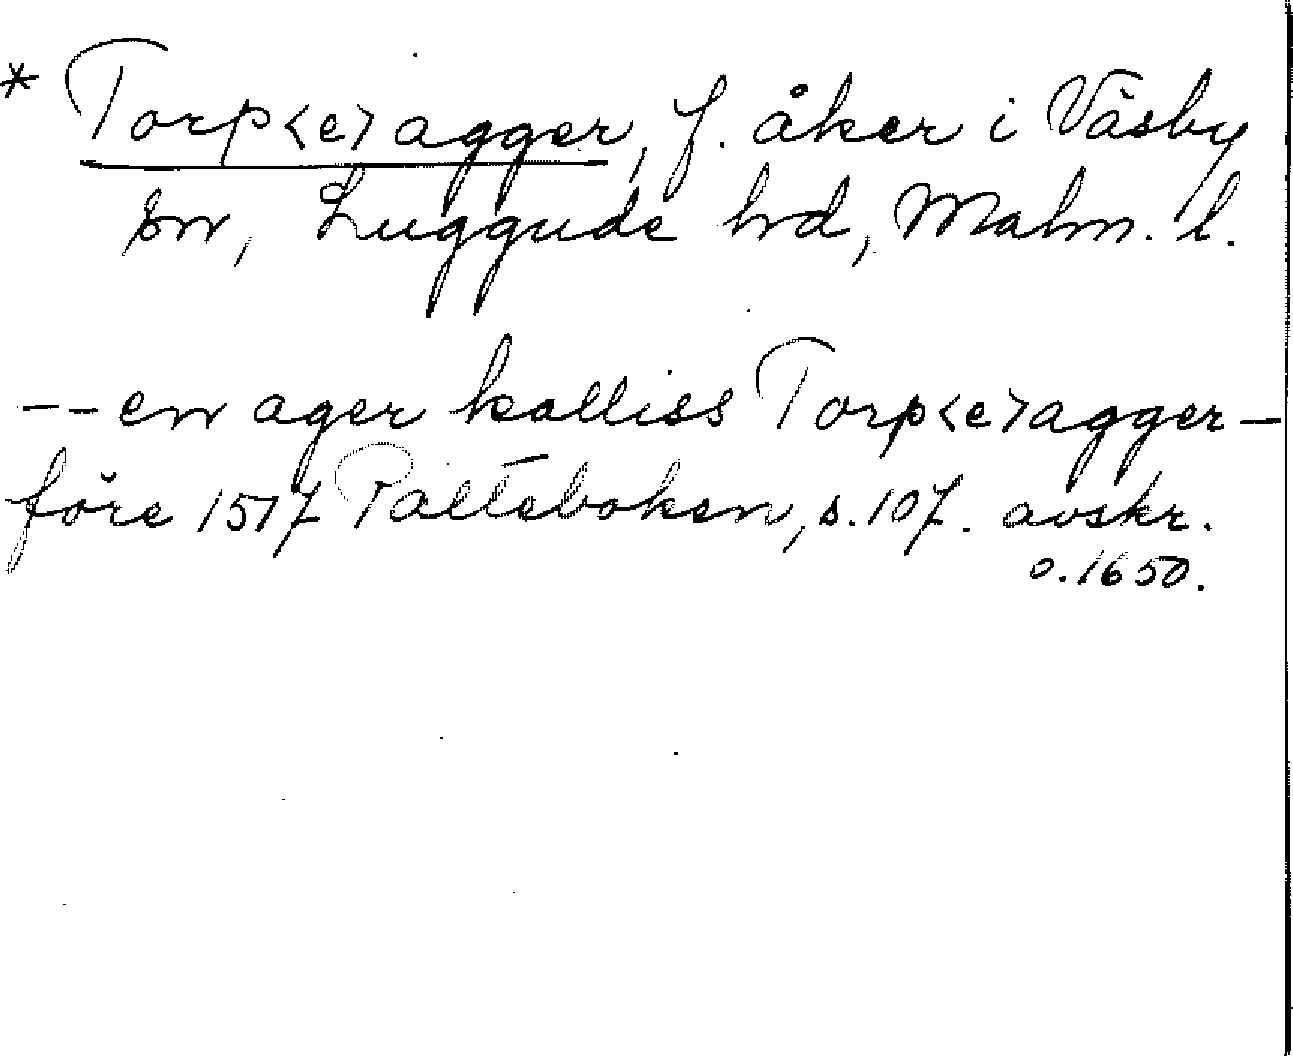 * Torp<e>agger, f. åker i Väsby
sn, Luggude hd, Malm. l.
-- en ager kalliss Torp<e>agger -
före 1517 Palteboken, s. 107. avskr.
o. 1650.